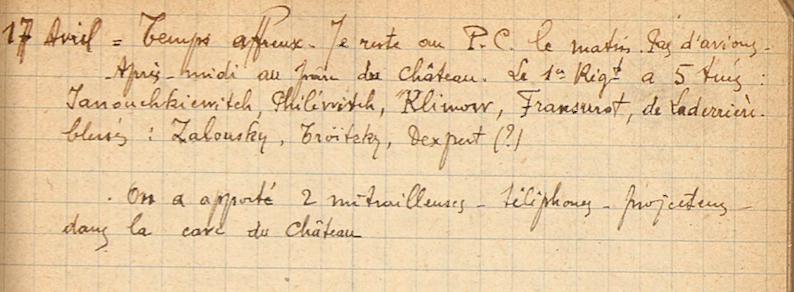 17 Avril = Temps affreux. Je reste au P.C. le matin. Pas d'avions.
Après-midi au parc du Château. Le 1er Rigt a 5 tués :
Janouchkiewitch, Philéwitch, Klimow, Fransurot, de Laderrière.
blessés : Zalousky, Troïtzky, Dexpert (?)
. On a apporté 2 mitrailleuses - téléphones - projecteurs -
dans la cave du Château